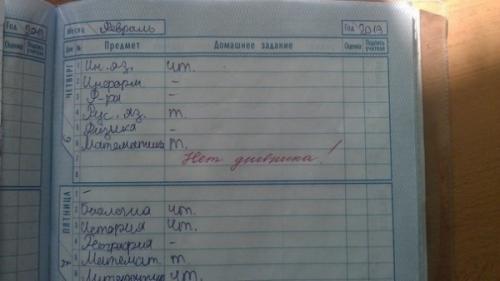 Год 2019 Месяц Февраль Год 2019
Оценка Подпись учителя Дни № Предмет Домашнее задание Оценка Подпись учителя
ЧЕТВЕРГ
6
1 Ин. яз. чт.
2 Информ –
3 Ф-ра –
4 Рус. яз. т.
5 Физика –
6 Математика т.
7 Нет дневника!
8
ПЯТНИЦА
1 –
2 Биология чт.
3 История чт.
4 География –
5 Математ. т.
6 Литература чт.